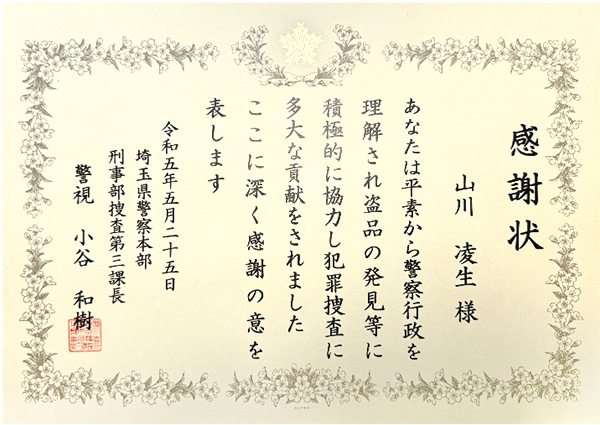 感謝状
山川 凌生 様
あなたは平素から警察行政を
理解され盗品の発見等に
積極的に協力し犯罪捜査に
多大な貢献をされました
ここに深く感謝の意を
表します
令和五年五月二十五日
埼玉県警察本部
刑事部捜査第三課長
警視 小谷 和樹